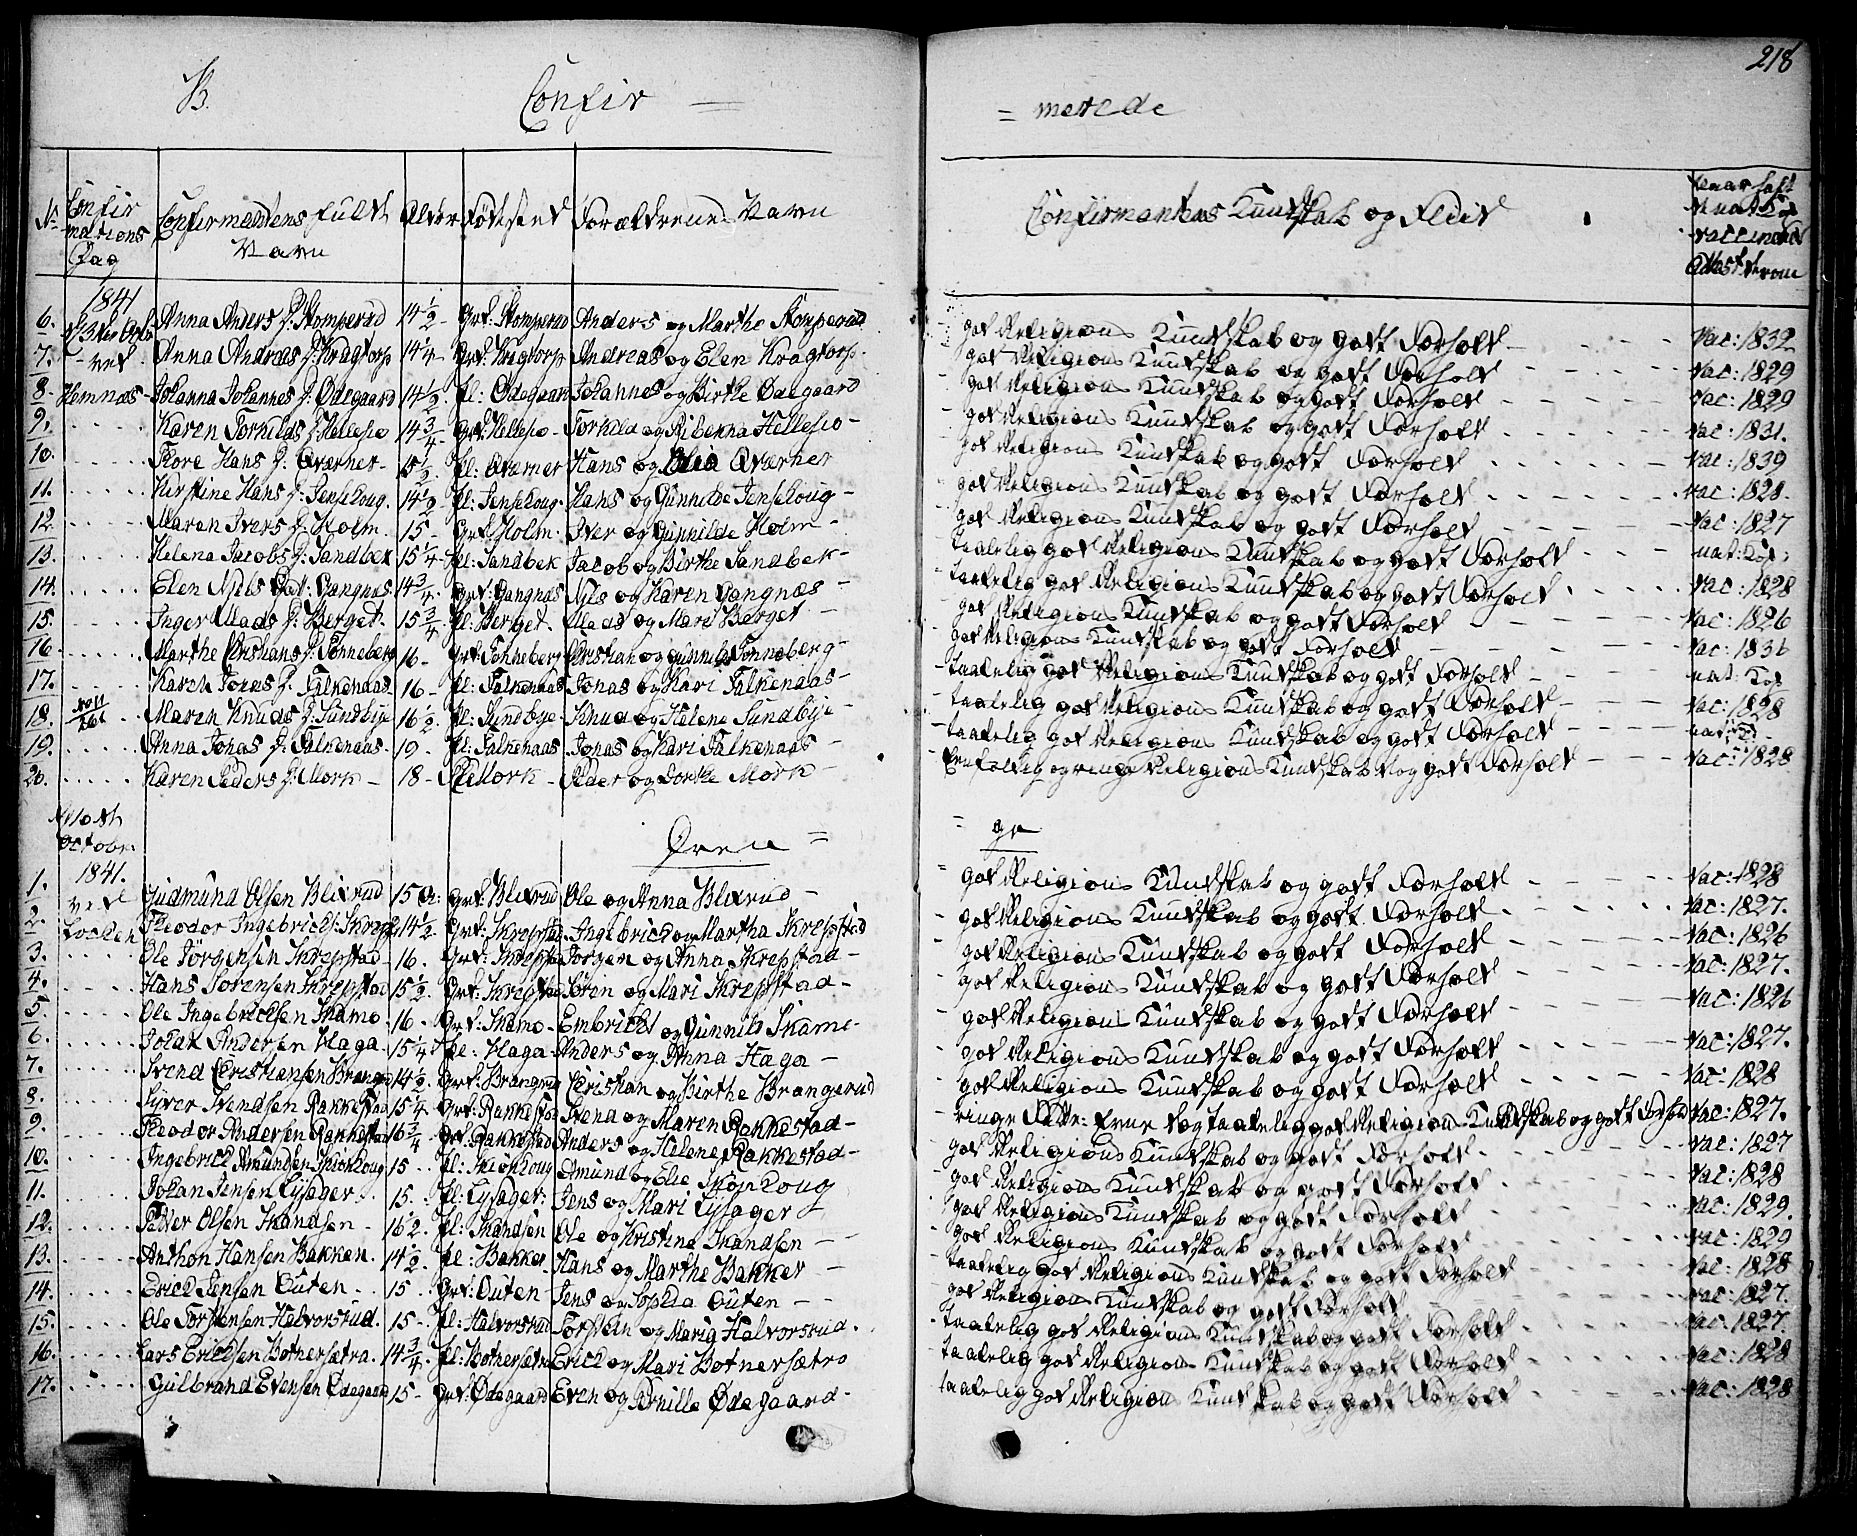 218
B. Confir = = merede
No Confirmations Dag Confirmandens fulde Navn Alder Fødested Forældrenes Navn Confirmantens Kundskab og Flid
1841
6. Anna Anders D: Stomperud 14 1/2 Grd: Stomperud Anders og Marthe Stomperud god Religions Kundskab og godt Forhold Vac: 1832
7. ved Anna Andreas D: Kragtorp 14 1/4 Grd: Kragtorp Andreas og Elen Kragtorp god Religions Kundskab og godt Forhold Vac: 1829
8. Hemnæs Johanna Johannes D: Ødegaard 14 1/2 Pl: Ødegaard Johannes og Birthe Ødegaard god Religions Kundskab og godt Forhold Vac: 1829
9. Karen Torkilds D: Hellesio 14 3/4 Grd: Hellesio Torkild og Hellesio god Religions Kundskab og godt Forhold Vac: 1831.
10. Tore Hans D: Qværner 15 1/2 Pl: Qværner Hans og Qværner god Religions Kundskab og godt Forhold Vac: 1839
11. Kirstine Hans D: Jensehoug 14 1/2 Pl: Jensehoug Hans og Gunnilde Jensehoug god Religions Kundskab og godt Forhold Vac: 1828.
12. Maren Ivers D: Holm 15 Grd: Holm Iver og Gunnilde Holm god Religions Kundskab og godt Forhold Vac: 1827
13. Helena Jacobs D: Sandbek 15 1/4 Pl: Sandbek Jacob og Birthe Sandbek taalelig god Religions Kundskab og godt Forhold nat: Kop:
14. Elen Nils Dat: Gangnæs 14 3/4 Grd: Gangnæs Nils og Karen Gangnæs taalelig god Religions Kundskab og godt Forhold Vac: 1828
15. Inger Mads D: Berget 15 3/4 Pl: Berget Mads og Mari Berget god Religions Kundskab og godt Forhold Vac: 1826
16. Marthe Cristians D: Tonneberg 16 Grd: Tonneberg Cristian og Gunnild Tonneberg god Religions Kundskab og godt Forhold Vac: 1831
17. Karen Jonas D: Falkenaas 16 Pl: Falkenaas Jonas og Kari Falkenaas taalelig god Religions Kundskab og godt Forhold nat: Kop
18. Maren Knuds D: Sundbye 16 1/2 Pl: Sundbye Knud og Helene Sundbye taalelig god Religions Kundskab og godt Forhold Vac: 1828
19. Anna Jonas D: Falkenaas 19 Pl: Falkenaas Jonas og Kari Falkenaas taalelig god Religions Kundskab og godt Forhold nat: Kop
20. Karen Peders D: Mork 18 Mork Peder og Dorthe Mork Enfoldig og ringe Religions Kundskab og godt Forhold Vac: 1828
October Dren = = ge
1841.
1. ved Gudmund Olsen Blixrud 15 A: Grd: Blixrud Ole og Anna Blixrud god Religions Kundskab og godt Forhold Vac: 1828
2. Teodor Ingebricts: Skrepst 14 1/2 Grd: Skrepstad Ingebrict og Martha Skrepstad god Religions Kundskab og godt Forhold Vac: 1827.
3. Ole Jörgensen Skrepstad 16. Grd: Skrepstad Jorgen og Anna Skrepstad god Religions Kundskab og godt Forhold Vac: 1826
4. Hans Sorensen Skrepstad 15 1/2 Grd: Skrepstad Sören og Mari Skrepstad god Religions Kundskab og godt Forhold Vac: 1827.
5. Ole Ingebrictsen Skamo 16 Grd: Skamo Embrict og Gunnild Skamo god Religions Kundskab og godt Forhold Vac: 1826
6. Johan Andersen Haga 15 1/4 Pl: Haga Anders og Anna Haga god Religions Kundskab og godt Forhold Vac: 1827.
7. Svend Cristiansen Brangerud 14 1/2 Grd: Brangrud Cristian og Birthe Brangerud god Religions Kundskab og godt Forhold Vac: 1828
8. Syver Svendsen Rakkestad 15 1/4 Grd: Rakkestad Svend og Maren Rakkestad ringe Evne og taalelig god Religions Kundskab og godt Forhold Vac: 1827.
9. Teodor Andersen Rakkestad 16 3/4 Grd: Rakkestad Anders og Helene Rakkestad god Religions Kundskab og godt Forhold Vac: 1827
10. Ingebrict Amundsen Skionhoug 15 Pl: Skionhoug Amund og Elie Skionhoug god Religions Kundskab og godt Forhold Vac: 1828
11. Johan Jensen Lysager 15. Pl: Lysager Jens og Mari Lysager god Religions Kundskab og godt Forhold Vac: 1829.
12. Petter Olsen Skandsen 16 1/2 Pl: Skandsen Ole og Kristine Skandsen god Religions Kundskab og godt Forhold Vac: 1829
13. Anthon Hansen Bakken 14 1/2 Pl: Bakken Hans og Marthe Bakken taalelig god Religions Kundskab og godt Forhold Vac: 1828
14. Erict Jensen Outen 15 Grd: Outen Jens og Sophia Outen god Religions Kundskab og godt Forhold Vac: 1827.
15. Ole Torstensen Halvorsrud 15 Pl: Halvorsrud Torsten og Maria Halvorsrud taalelig god Religions Kundskab og godt Forhold Vac: 1827
16. Lars Erictsen Botnersætra 14 3/4 Pl: Botnersætra Erict og Mari Botnersætra taalelig god Religions Kundskab og godt Forhold Vac: 1828
17. Gulbrand Evensen Ødegaard 15 Grd: Ødegaard Even og Pernille Ødegaard taalelig god Religions Kundskab og godt Forhold Vac: 1828